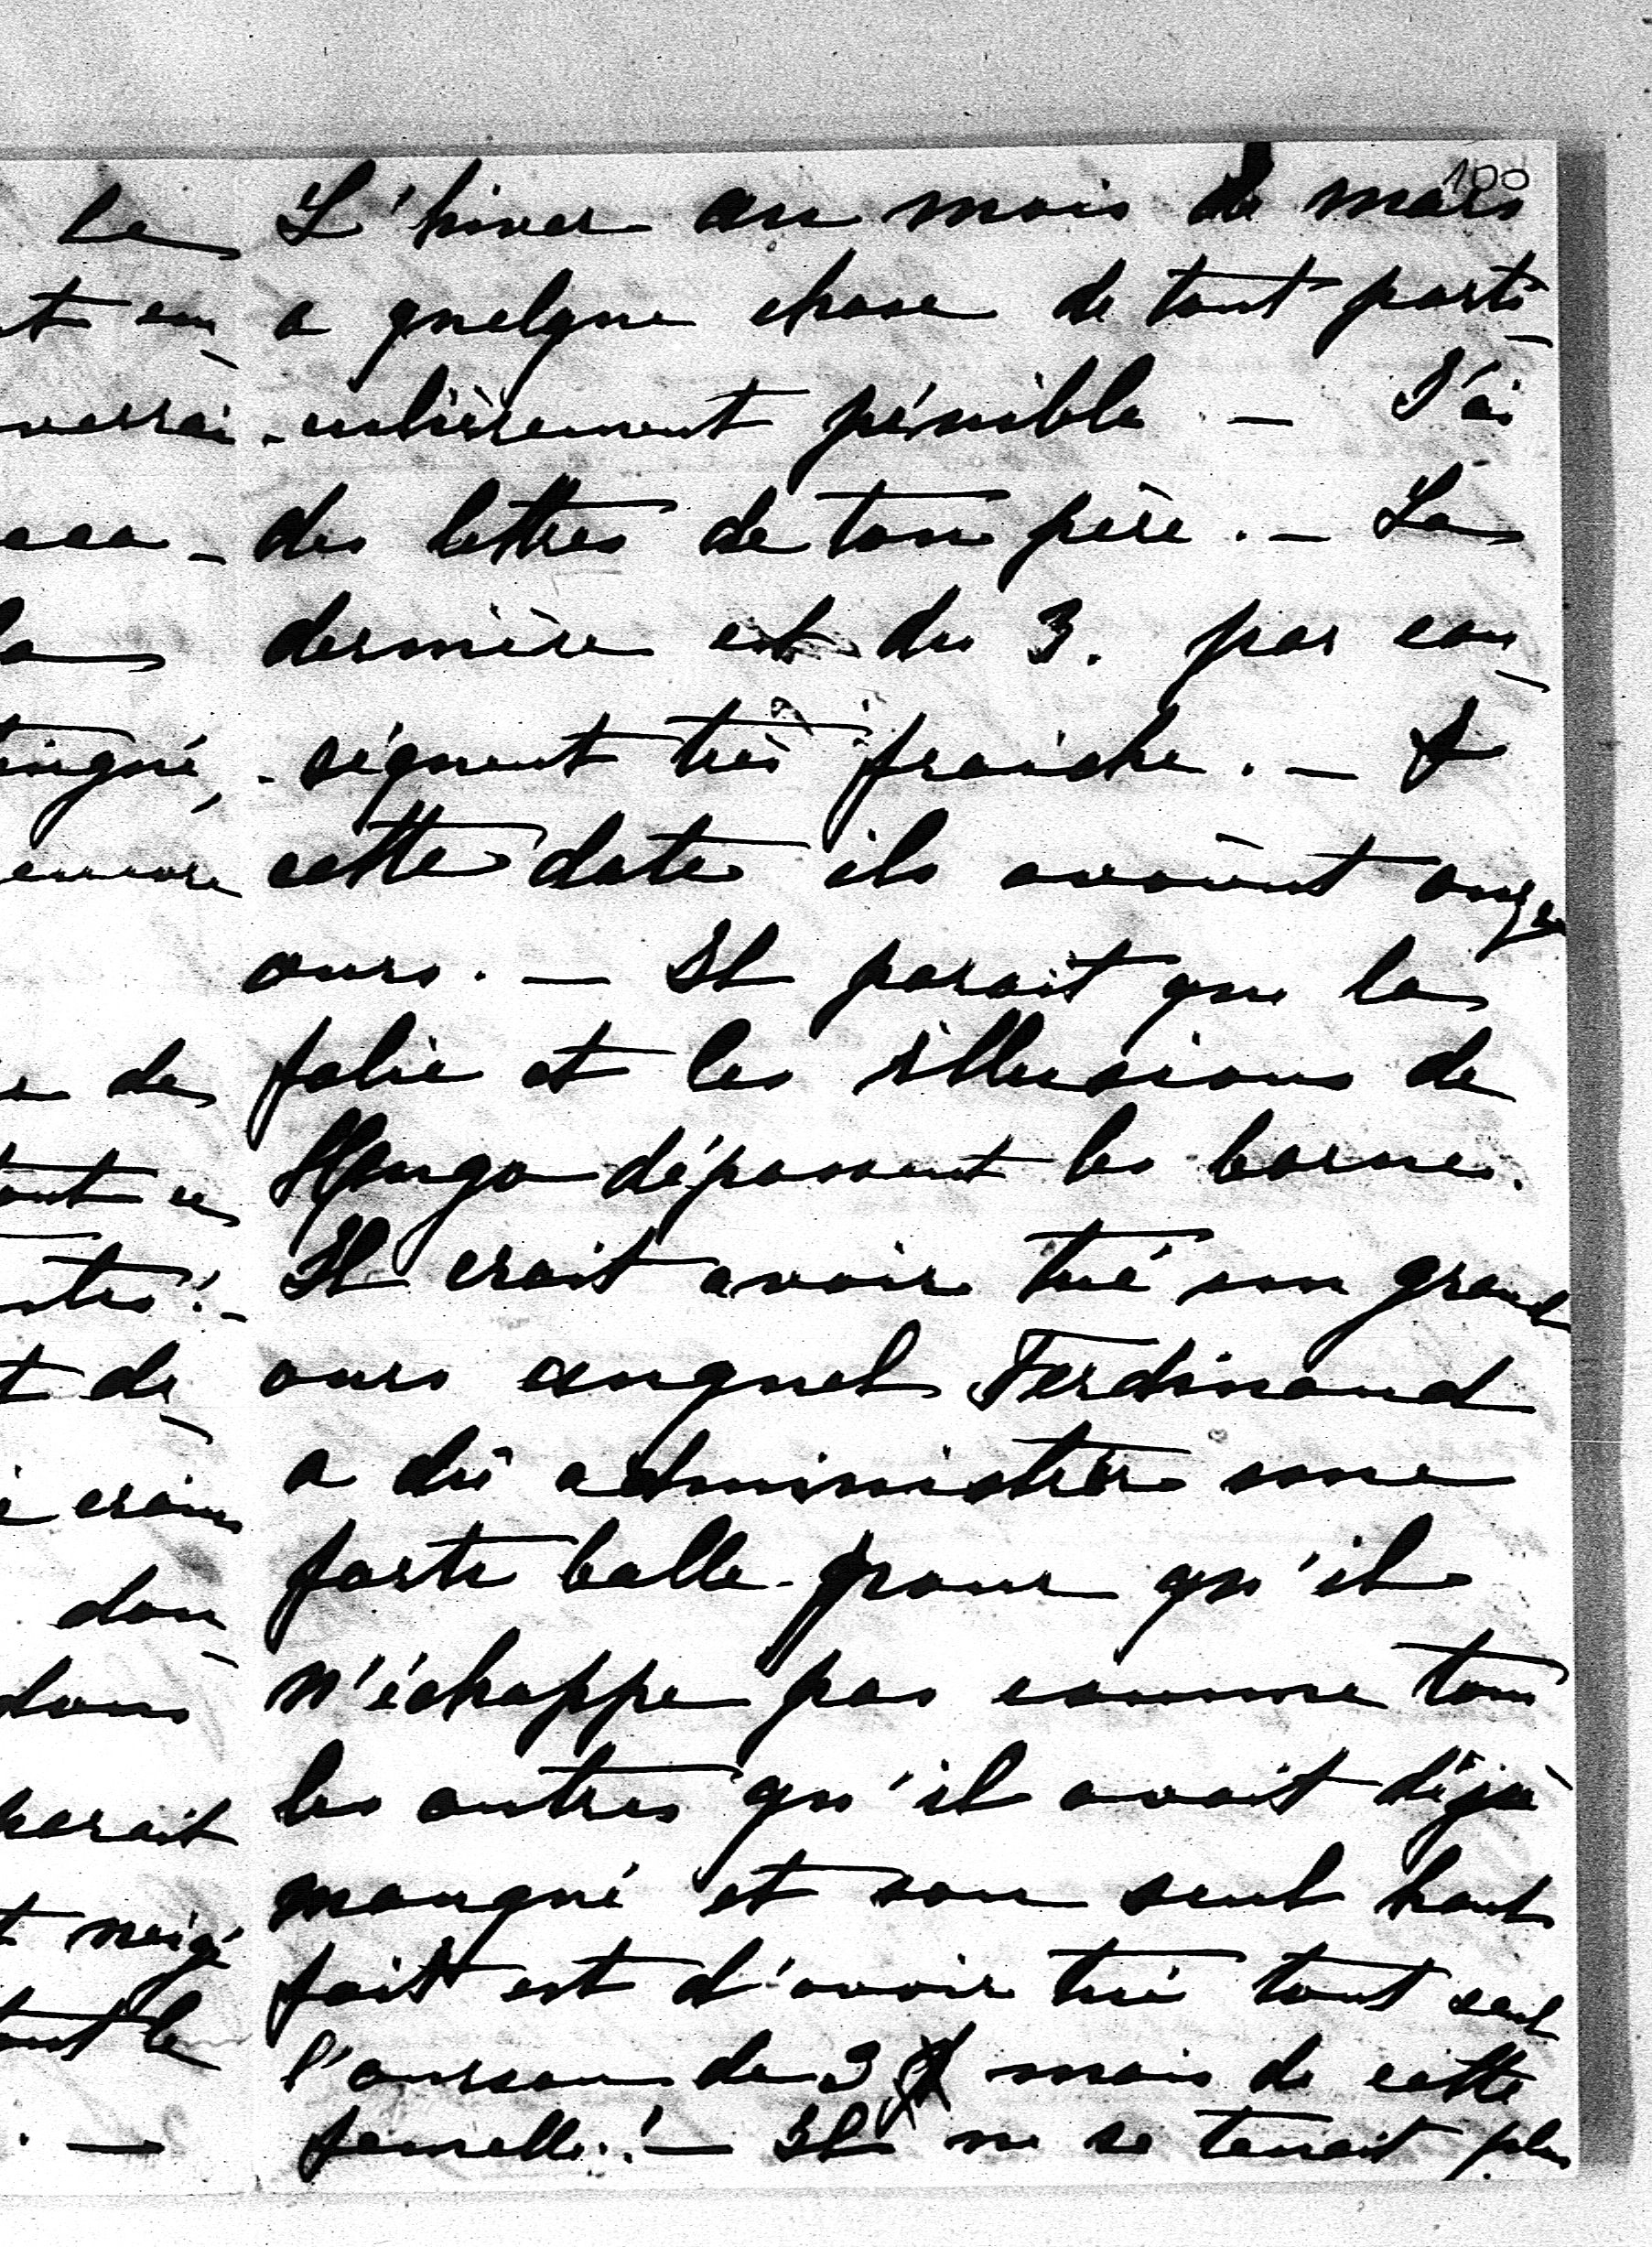 100
L'hiver au mois de mars
a quelque chose de tout parti-
-culièrement pénible. — J'ai
des lettres de ton père. — La
dernière est du 3. par con-
-séquent très fraiche. — A
cette date ils avaient onze
ours. — Il parait que la
folie et les illusions de
Hongo dépassent les bornes.
Il croit avoir tué un grand
ours auquel Ferdinand
a dû administrer une
forte balle pour qu'il
n'échappe pas comme tous
les autres qu'il avait déjà
manqué et son seul haut
fait est d'avoir tué tout seul
l'ourson de 2 mois de cette
femelle! — Il ne se tenait plus
le
verrai
la
encore
de
crains
dans
parait
neigé